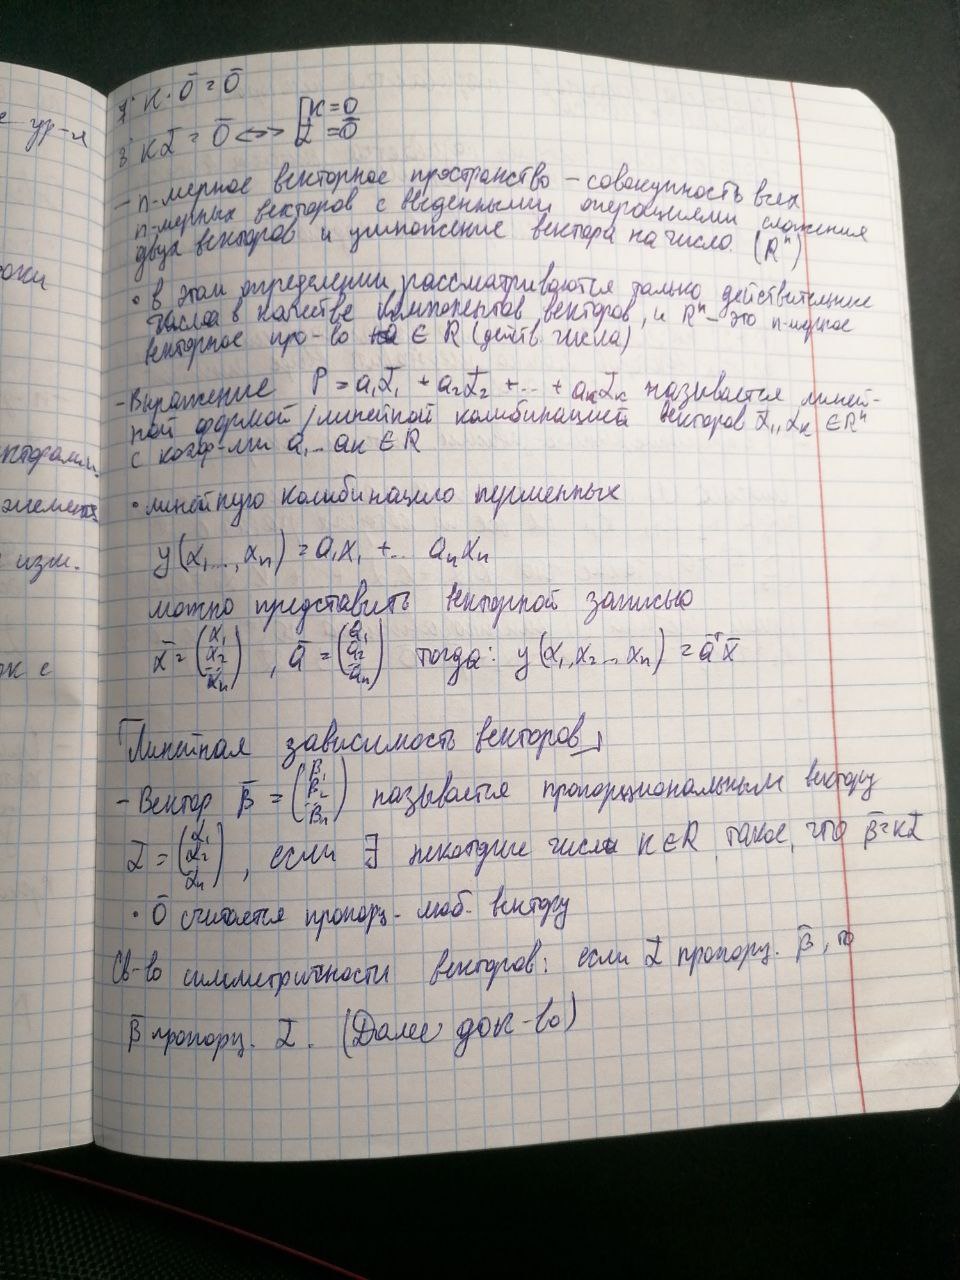 7° К·0̄ = 0̄
8° Кᾱ = 0̄ <=> [К=0
ᾱ = 0̄
- n-мерное векторное пространство – совокупность всех
n-мерных векторов с введенными операциями сложения
двух векторов и умножение вектора на число. (Rⁿ)
• в этом определении рассматриваются только действительные
числа в качестве компонентов векторов, и Rⁿ – это n-мерное
векторное про-во на ∈ R (действ. числа)
- Выражение P = a₁ᾱ₁ + a₂ᾱ₂ + ... + aкᾱк называется линей-
ной формой/линейной комбинацией векторов ᾱ₁,, ᾱк ∈ Rⁿ
с коэф-ми a₁... aк ∈ R
• линейную комбинацию перменных
y(x₁, ..., xₙ) = a₁x₁ + ... aₙxₙ
можно представить векторной записью
x̄ = (x₁ x₂ ... xₙ), ā = (a₁ a₂ ... aₙ) тогда: y(x₁, x₂ ... xₙ) = āᵀx̄
Линейная зависимость векторов
- Вектор β̄ = (β₁ β₂ ... βₙ) называется пропорциональным вектору
ᾱ = (α₁ α₂ ... αₙ), если ∃ число К ∈ R, такое, что β̄ = кᾱ
• 0̄ считается пропорц. люб. вектору
Св-во симметричности векторов: если ᾱ пропорц. β̄, то
β̄ пропорц. ᾱ. (Далее док-во)
е ур-я
изм.